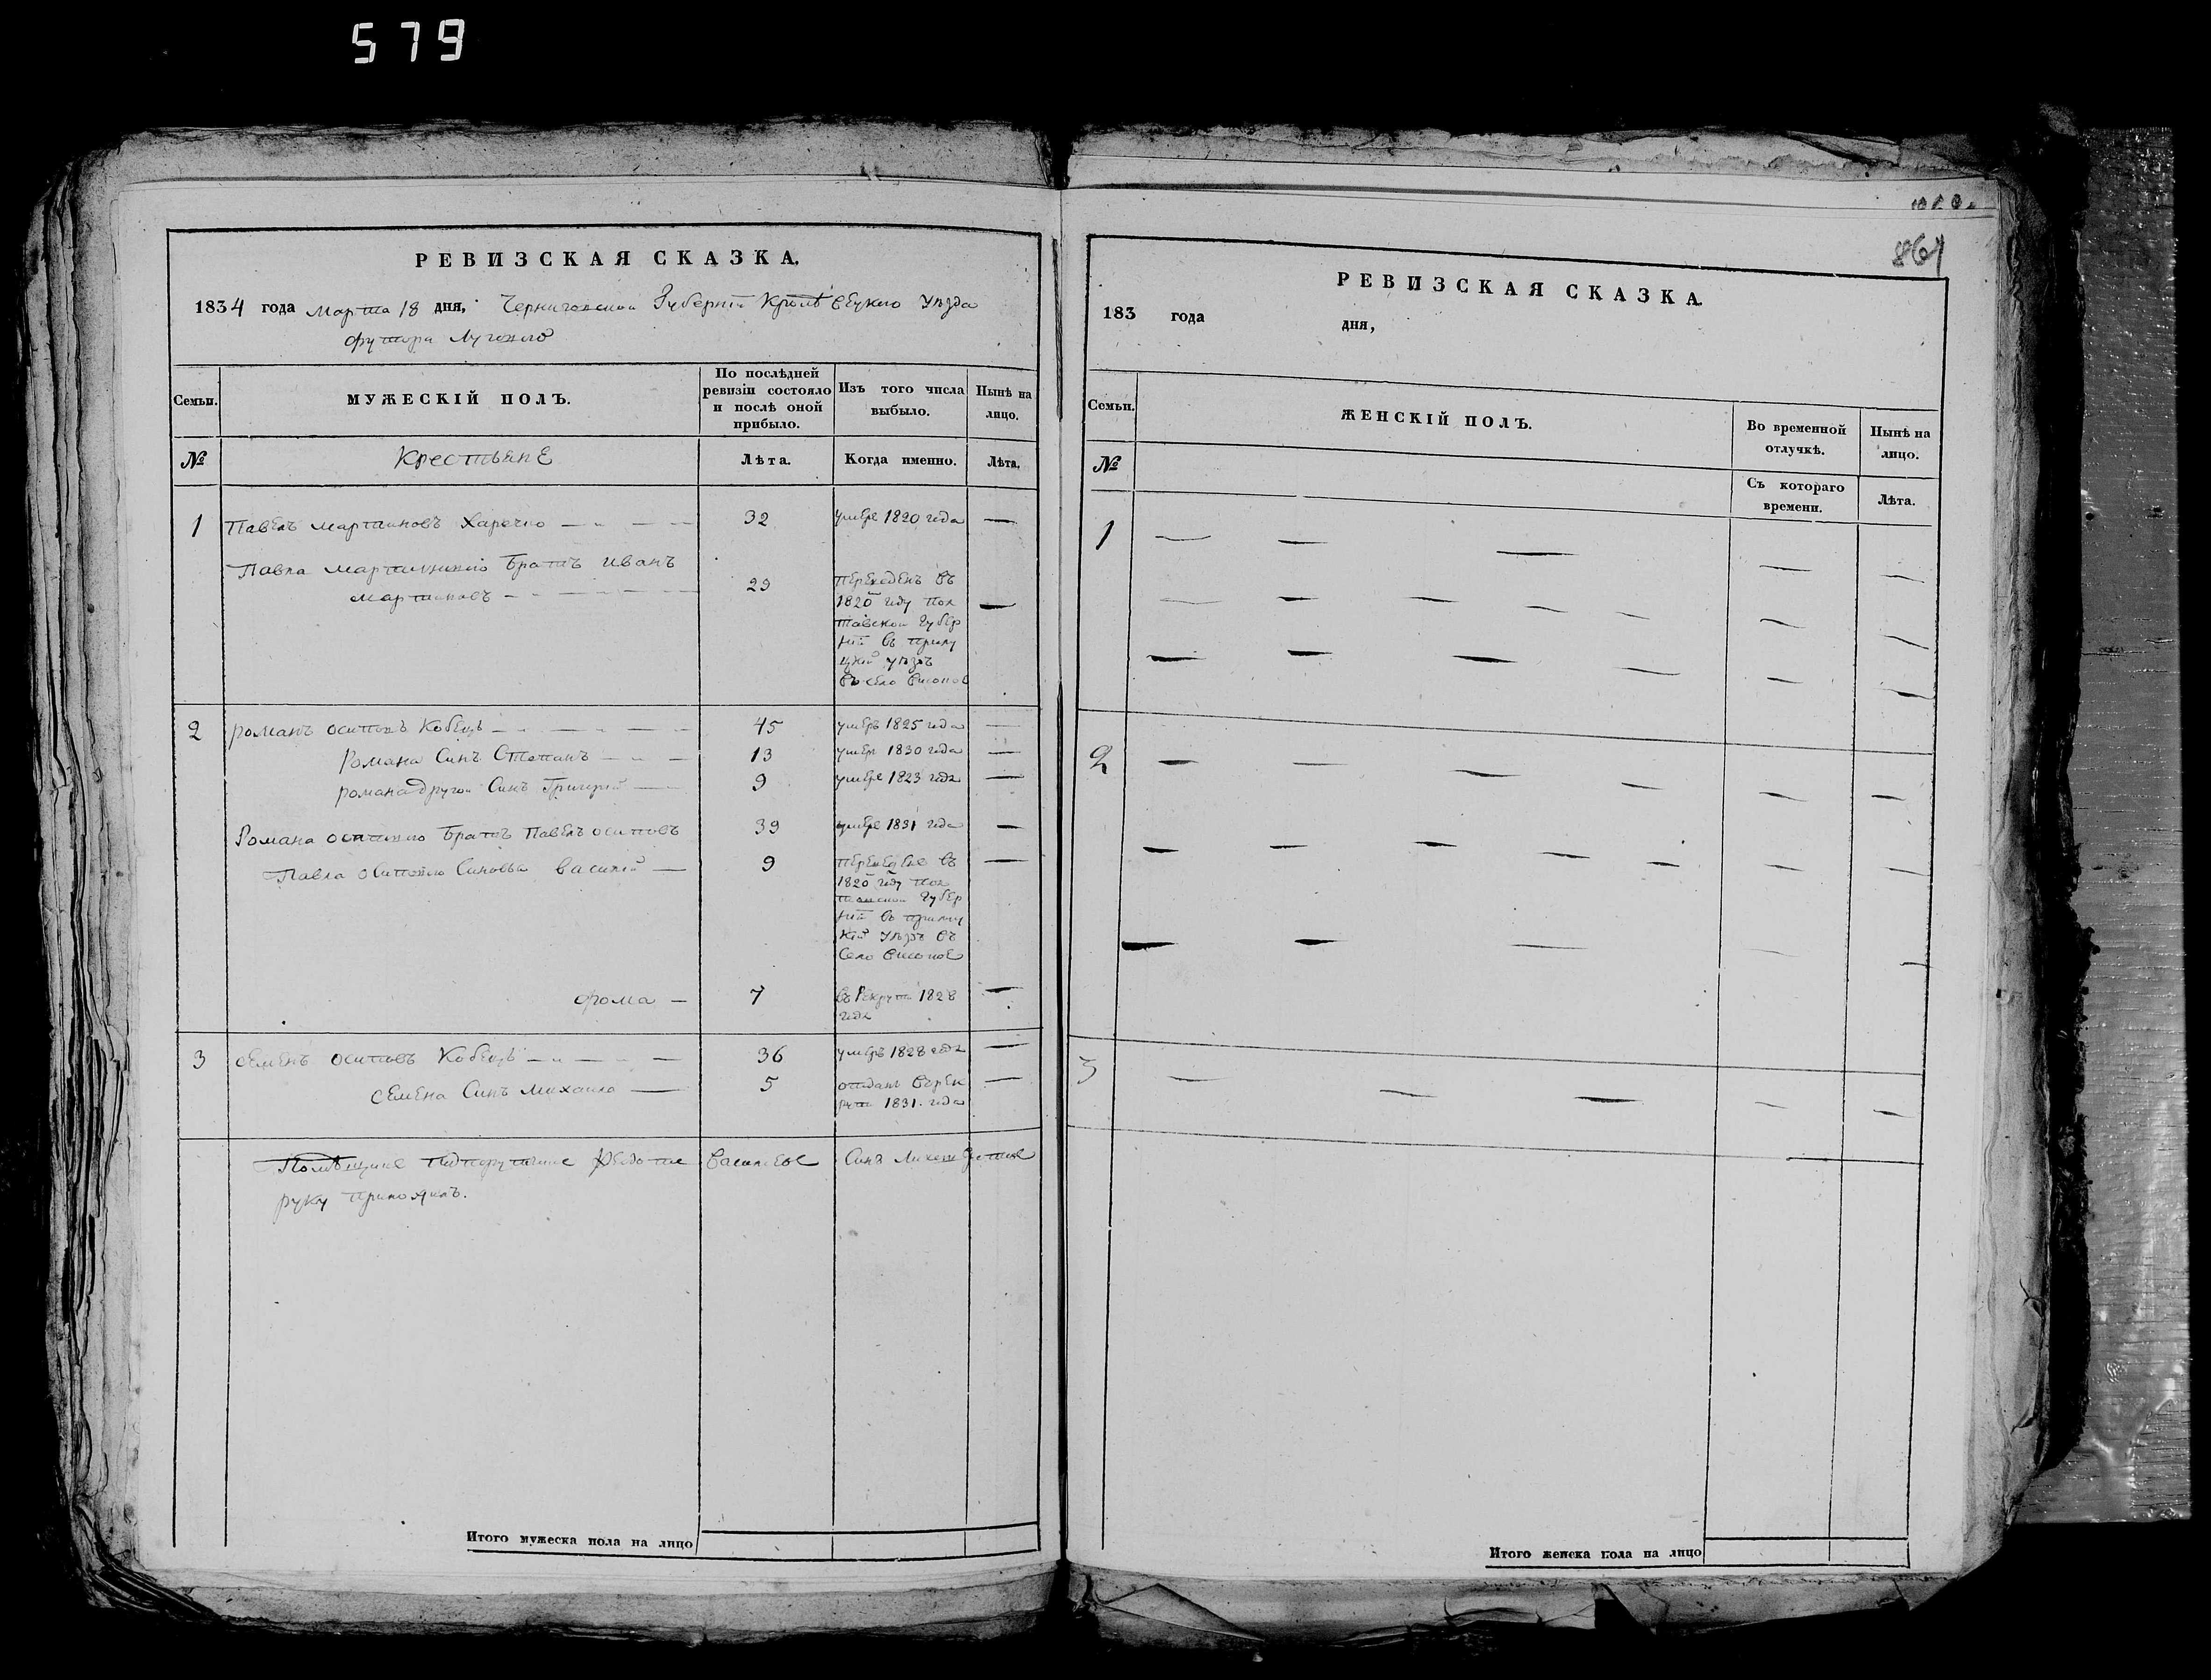 579
РЕВИЗСКАЯ СКАЗКА.
1834 года Марта 18 дня, Черниговской Губерніи Кролевецкаго Уѣзда
футора Лугового
Семьи.
МУЖЕСКІЙ ПОЛЪ.
По послѣдней ревизіи состояло и послѣ оной прибыло.
Изъ того числа выбыло.
Нынѣ на лицо.
№
Крестьяне
Лѣта.
Когда именно.
Лѣта.
1 Павелъ Мартиновъ Харечко 32 умбре 1820 года
Павла Мартинового Братъ Иванъ
Мартиновъ 29 Переведенъ въ
1820 году Пол
тавской Губер
ніи въ прилу
цкій уѣздъ
въ село
2 Романъ Осиповъ Кобецъ 45 умбръ 1825 года
Романа Синъ Степанъ 13 умбръ 1830 года
Романа другой Синъ Григорій 9 умбре 1823 года
Романа Осипового Братъ Павелъ Осиповъ 39 умбре 1831 года
Павла Осипового Синовья Василій 9 въ
1820 году Пол
тавской Губер
ніи въ прилу
кій Уѣздъ въ
Село
Фома 7 въ Рекруты 1828
года
3 Семенъ Осиповъ Кобецъ 36 умбръ 1828 года
Семена Синъ Михаила 5 отданъ Врек
рути 1831 года
руку приложилъ.
Итого мужеска пола на лицо
861
РЕВИЗСКАЯ СКАЗКА.
183 года дня,
Семьи.
ЖЕНСКІЙ ПОЛЪ.
Во временной отлучкѣ.
Нынѣ на лицо.
№
Съ котораго времени.
Лѣта.
1
2
3
Итого женска пола на лицо